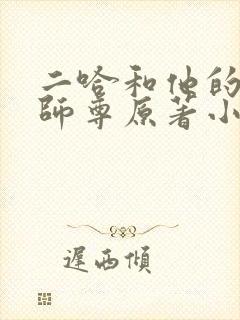 二哈和他的
師尊原著小
遲西傾